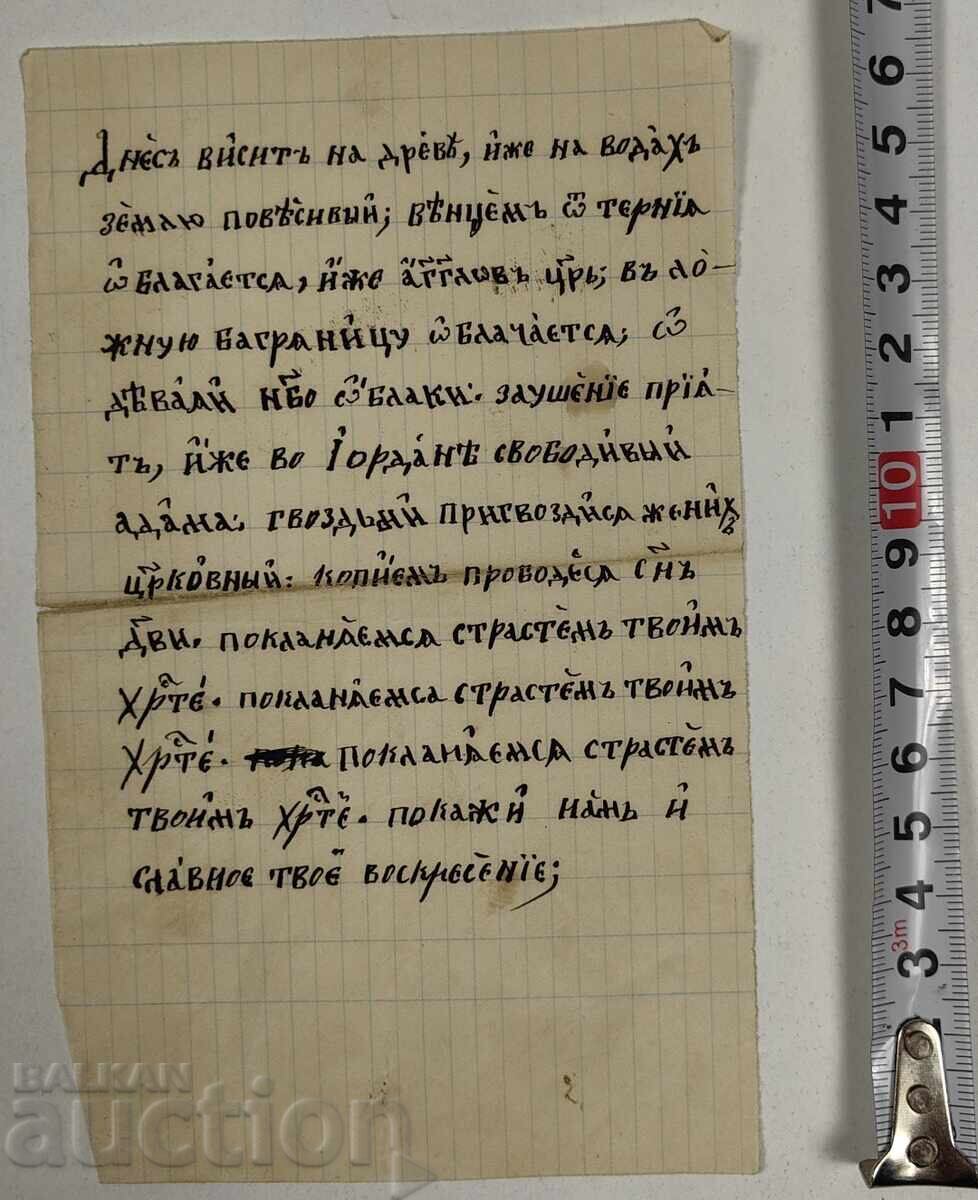 Днѐсъ ви́ситъ на дре́вѣ, и҆́же на вода̀хъ
зѐмлю повѣ́сивый; вѣнце́мъ ѿ те́рнїѧ
ѡ҆блага́етсѧ, и҆́же а҆́гг҃лѡвъ цр҃ь; въ ло̀-
жную баграни́цу ѡ҆блача̀етсѧ; ѡ҆
дѣва́ѧй нб҃о ѡ҆́блаки. заушѐнїе прїѧ́-
тъ, и҆́же во І҆орда́нѣ свободи́вый
ада́ма. гвоздьми́ пригвозди́сѧ жени́хъ
цр҃ко́вный. копїе́мъ прободе́сѧ сн҃ъ
дв҃и. покланѧ̀емсѧ страстѐмъ твои̑мъ
хрⷭ҇те́. покланѧ́емсѧ страстѐмъ твои̑мъ
хрⷭ҇те́. покланѧ́емсѧ страстѐмъ
твои̑мъ хрⷭ҇тѐ. покажи́ на́мъ и҆
сла́вное твоѐ воскресѐнїе;
BALKAN
auction
7
6
5
4
3
2
1
10
9
8
7
6
5
4
3m
3
2